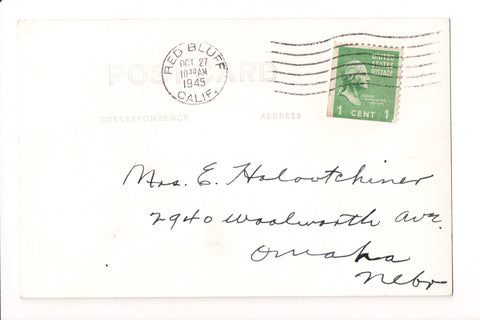 RED BLUFF
OCT 27
10 AM
1945
CALIF.
UNITED
STATES
POSTAGE
1 CENT 1
POST CARD
CORRESPONDENCE ADDRESS
Mrs. E. Holootchiner
2940 Woolworth Ave.
Omaha
Nebr